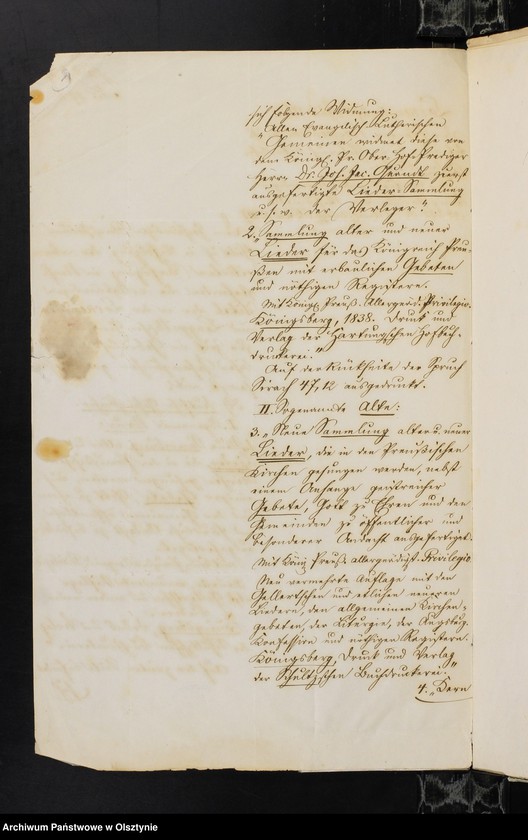 sich folgende Widmung:
"Allen Evangelisch-Lutherischen
Gemeinen widmet diese von
dem Königl. Pr. Ober-Hof-Prediger
Herrn Dr. Joh. Jac. zuerst
ausgefertigte Lieder-Sammlung
u. s. w. der Verleger."
2. "Sammlung alter und neuer
Lieder für das Königreich Preu-
ßen mit erbaulichen Gebeten
und nöthigen Registern.
Mit Königl. Preuß. Allergnäd. Privilegio.
Königsberg, 1838. Druck und
Verlag der Hartungschen Hofbuch-
druckerei."
Auf der Rückseite der Spruch
Sirach 47,12 ausgedruckt.
II. Sogenannte Alte:
3. "Neue Sammlung alter u. neuer
Lieder, die in den Preußischen
Kirchen gesungen werden, nebst
einem Anhange geistreicher
Gebete, Gott zu Ehren und den
Gemeinden zu öffentlicher und
besonderer Andacht ausgefertiget.
Mit König. Preuß. allergnädigst. Privilegio
Neu vermehrte Auflage mit den
Gellertschen und etlichen neueren
Liedern, den allgemeinen Kirchen-
gebeten, der Liturgie, der Augsburg.
Konfession und nöthigen Registern.
Königsberg, Druck und Verlag
der Schultzschen Buchdruckerei."
4. "Kern
Archiwum Państwowe w Olsztynie